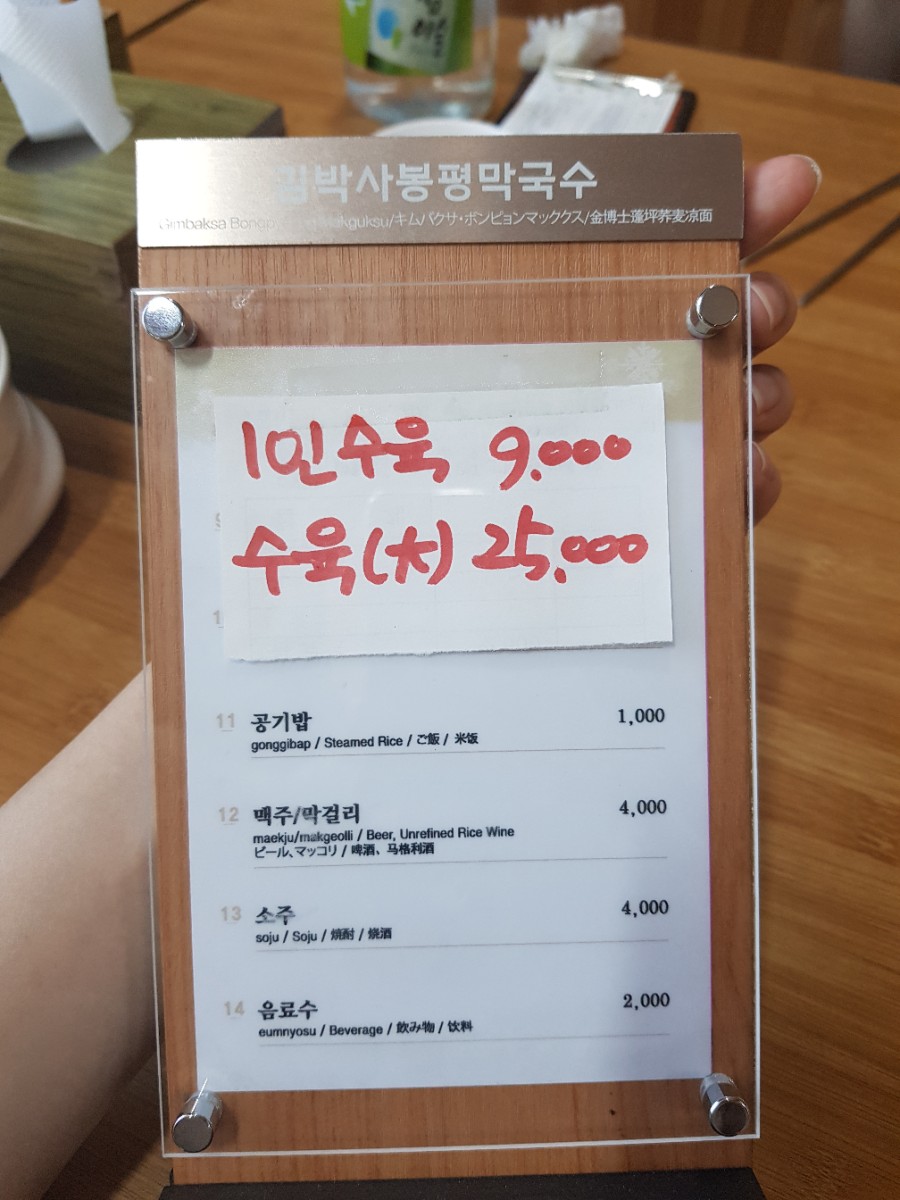 김박사봉평막국수
Gimbaksa Makguksu/キムパクサ・ボンピョンマッククス/金博士蓬坪荞麦凉面
1인수육 9.000
수육(大) 25.000
11 공기밥 1,000
gonggibap / Steamed Rice / ご飯 / 米饭
12 맥주/막걸리 4,000
maekju/makgeolli / Beer, Unrefined Rice Wine
ビール、マッコリ / 啤酒、马格利酒
13 소주 4,000
soju / Soju / 焼酎 / 烧酒
14 음료수 2,000
eumnyosu / Beverage / 飲み物 / 饮料